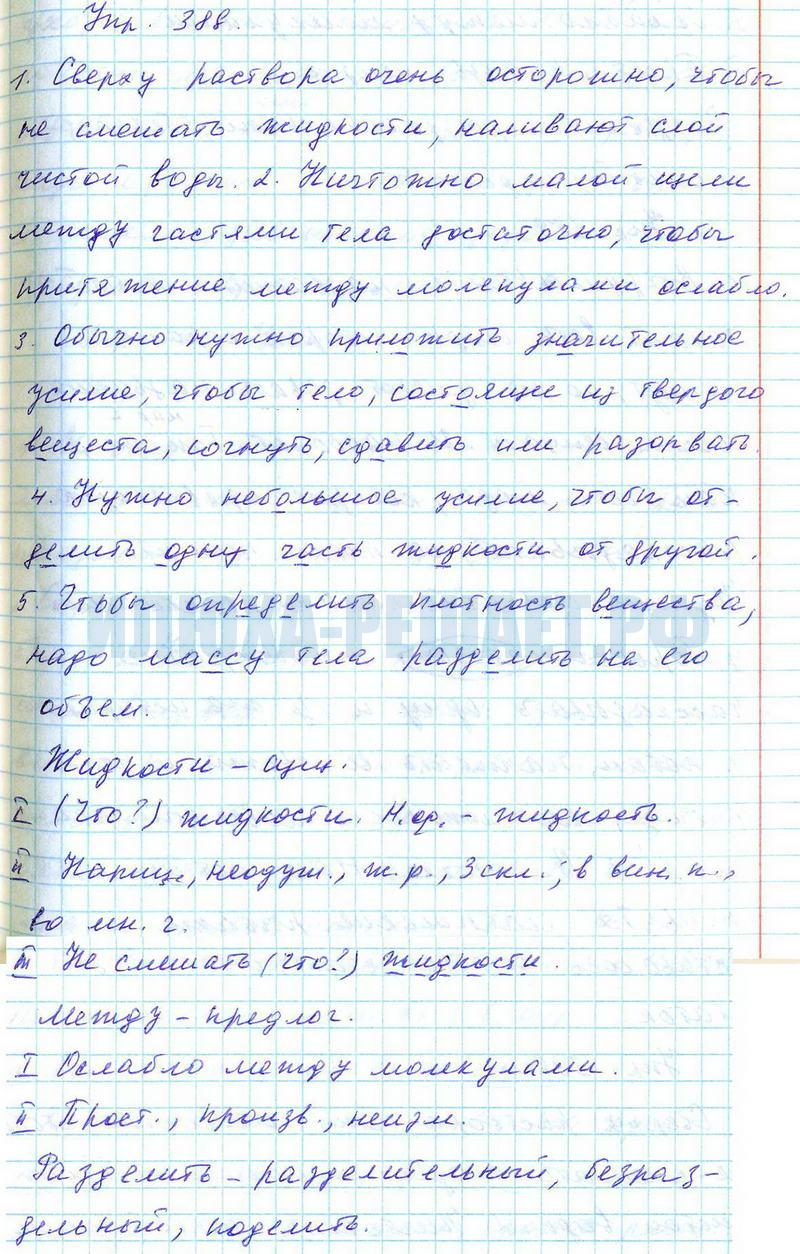 Упр. 388.
1. Сверху раствора очень осторошно, чтобы
не смешать жидкости, наливают слой
чистой воды. 2. Ничтожно малой щели
между частями тела достаточно, чтобы
притяжение между молекулами ослабло.
3. Обычно нужно приложить значительное
усилие, чтобы тело, состоящие из твердого
вещеста, согнуть, сдавить или разорвать.
4. Нужно небольшое усилие, чтобы от-
делить одну часть жидкости от другой.
5. Чтобы определить плотность вещества,
надо массу тела разделить на его
объем.
ИДНИХА-РЕШАЕТ.РФ
Жидкости – сущ.
I (Что?) жидкости. Н.ф. – жидкость.
II Нариц., неодуш., ж.р., 3 скл.; в вин. п.,
во мн. ч.
III Не смешать (что?) жидкости.
Между – предлог.
I Ослабло между молекулами.
II Прост., произв., неизм.
Разделить – разделительный, безраз-
дельный, поделить.